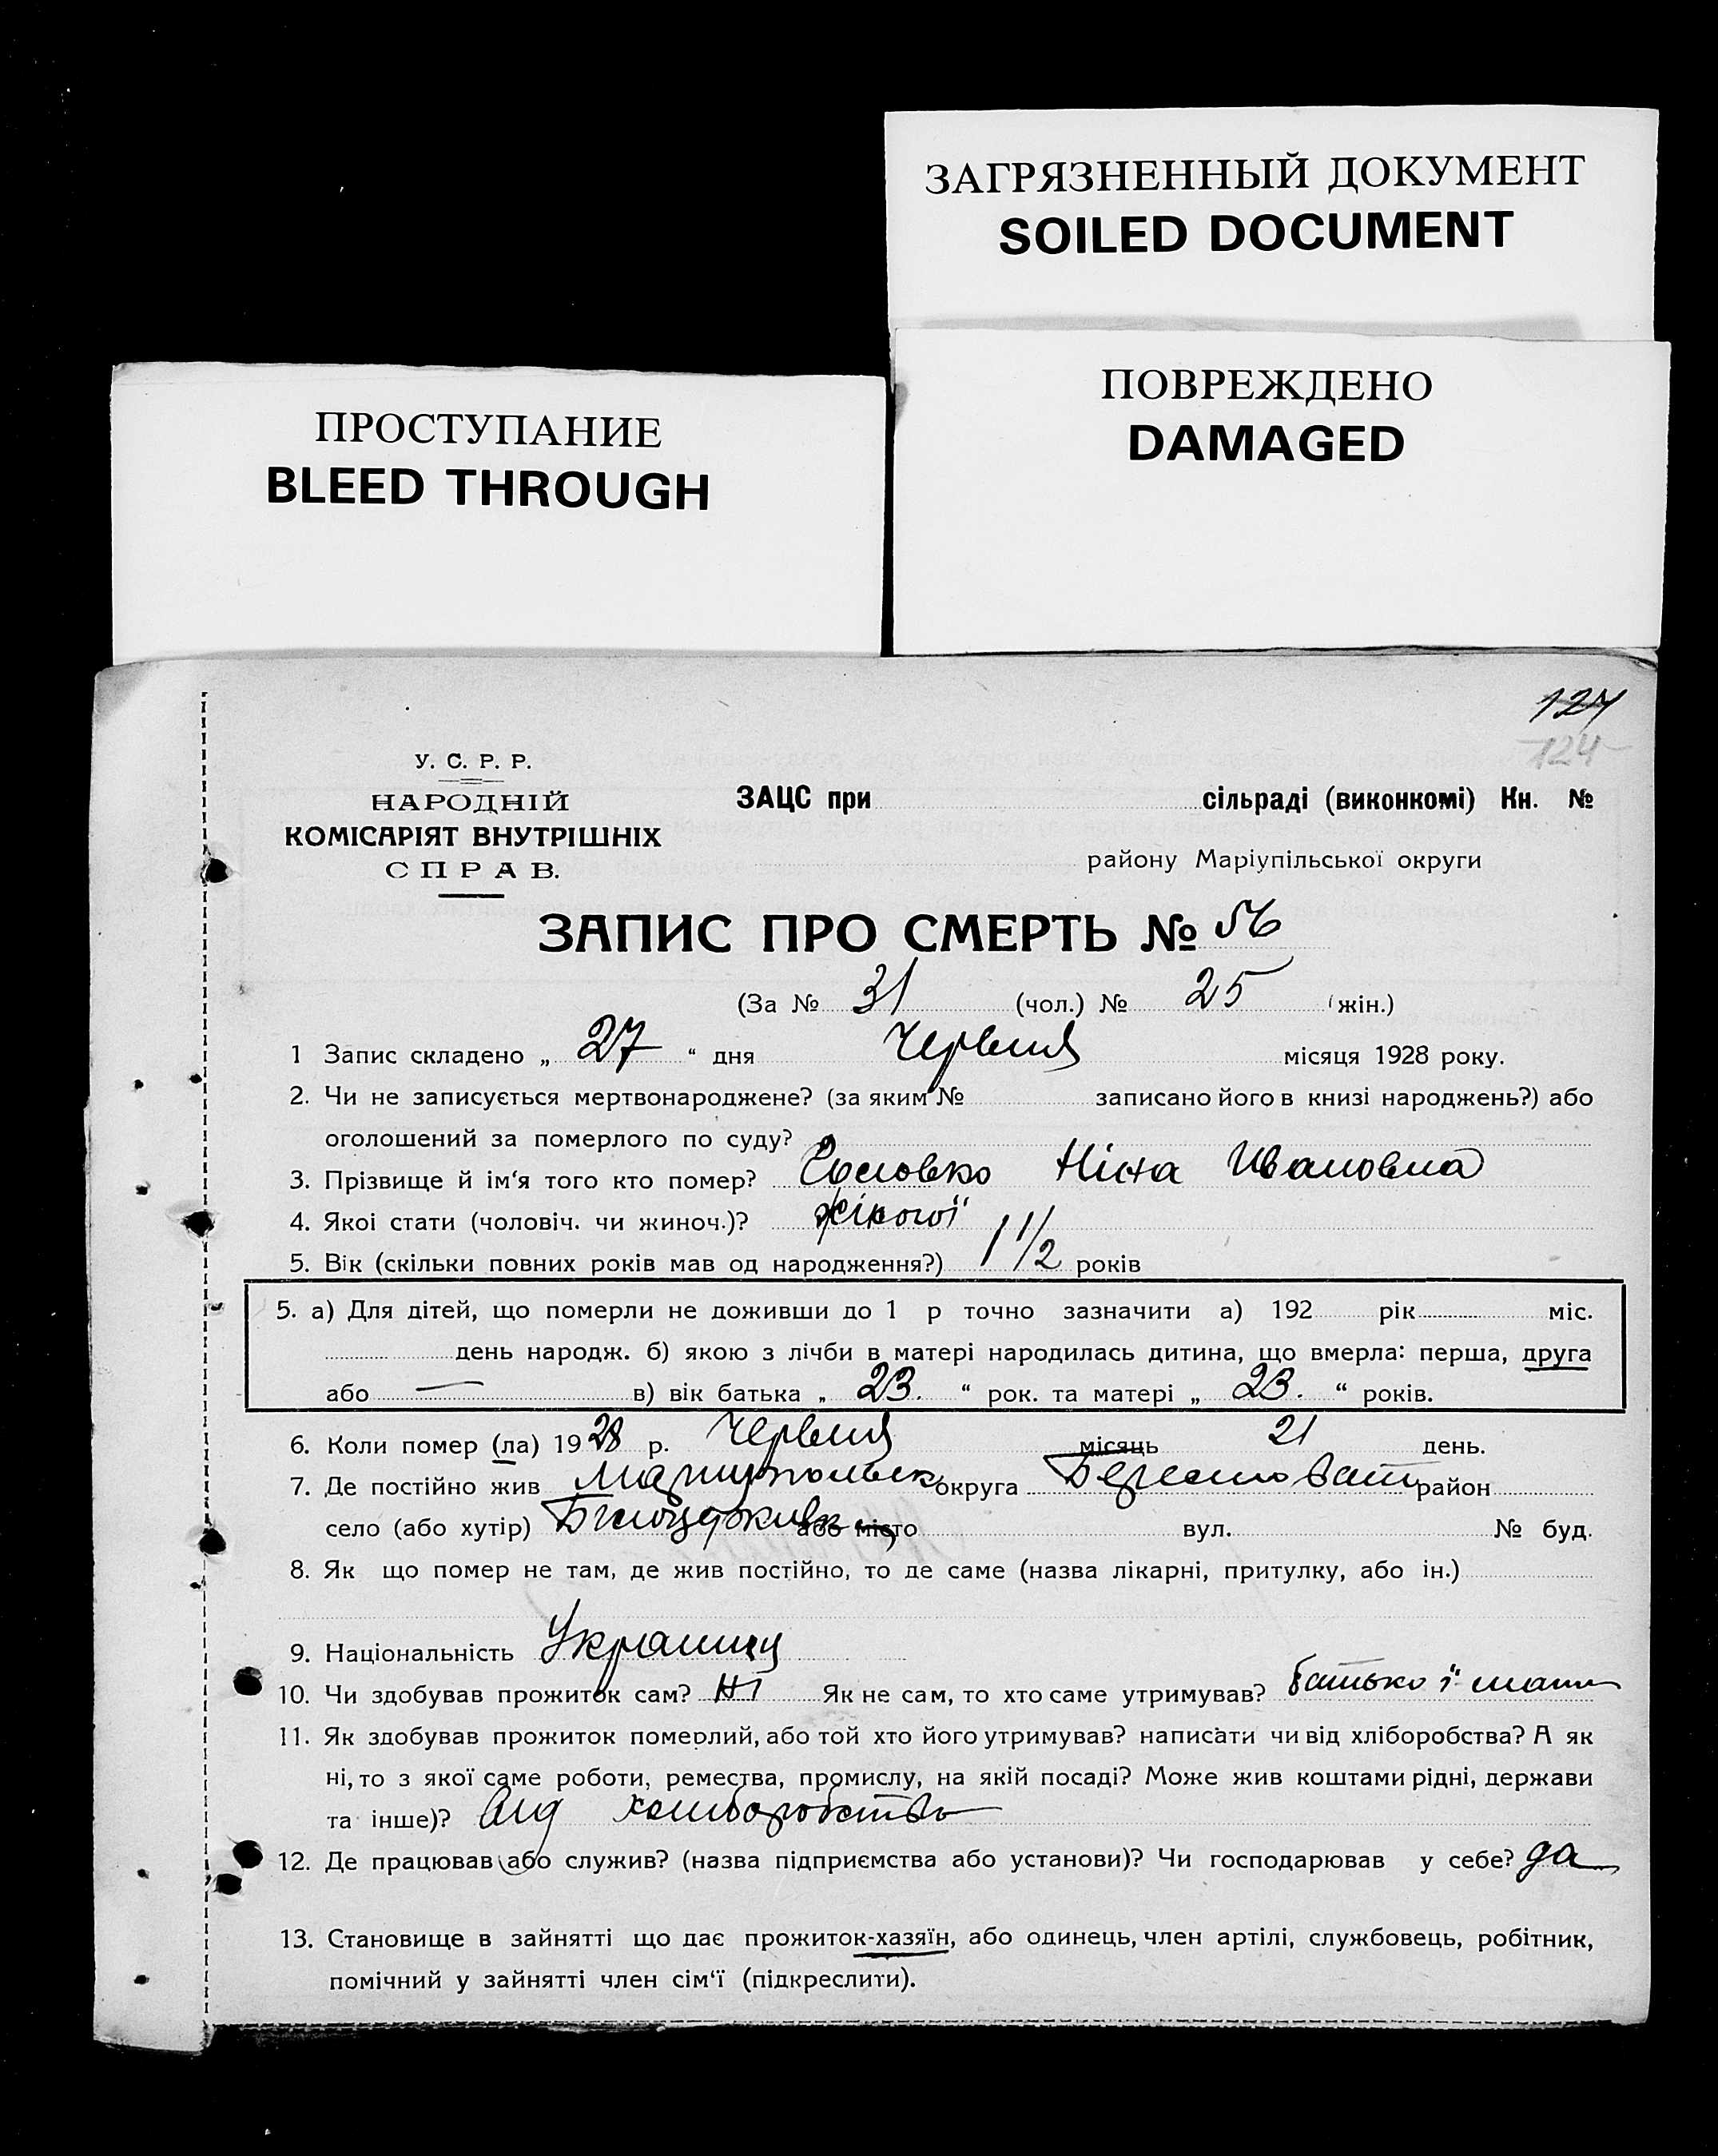 ЗАГРЯЗНЕННЫЙ ДОКУМЕНТ
SOILED DOCUMENT
ПРОСТУПАНИЕ
BLEED THROUGH
ПОВРЕЖДЕНО
DAMAGED
127
124
У. С. Р. Р.
НАРОДНІЙ
КОМІСАРІЯТ ВНУТРІШНІХ
СПРАВ.
ЗАЦС при сільраді (виконкомі) Кн. №
району Маріупільської округи
ЗАПИС ПРО СМЕРТЬ № 56
(За № 31 (чол.) № 25 (жін.)
1 Запис складено „ 27 “ дня Червня місяця 1928 року.
2. Чи не записується мертвонароджене? (за яким № записано його в книзі народжень?) або
оголошений за померлого по суду?
3. Прізвище й ім‘я того кто помер? Ніна Ивановна
4. Якоі стати (чоловіч. чи жиноч.)? жіночої
5. Вік (скільки повних років мав од народження?) 1 1/2 років
5. а) Для дітей, що померли не доживши до 1 р точно зазначити а) 192 рік міс.
день народж. б) якою з лічби в матері народилась дитина, що вмерла: перша, друга
або — в) вік батька „ 23. “ рок. та матері „ 23. “ років.
6. Коли помер (ла) 1928 р. Червня місяць 21 день.
7. Де постійно жив Мариупольск округа район
село (або хутір) або місто вул. № буд.
8. Як що помер не там, де жив постійно, то де саме (назва лікарні, притулку, або ін.)
9. Національність
10. Чи здобував прожиток сам? Ні Як не сам, то хто саме утримував? батько і мати
11. Як здобував прожиток померлий, або той хто його утримував? написати чи від хліборобства? А як
ні, то з якої саме роботи, ремества, промислу, на якій посаді? Може жив коштами рідні, держави
та інше)?
12. Де працював або служив? (назва підприємства або установи)? Чи господарював у себе? да
13. Становище в зайнятті що дає прожиток-хазяїн, або одинець, член артілі, службовець, робітник,
помічний у зайнятті член сім‘ї (підкреслити).